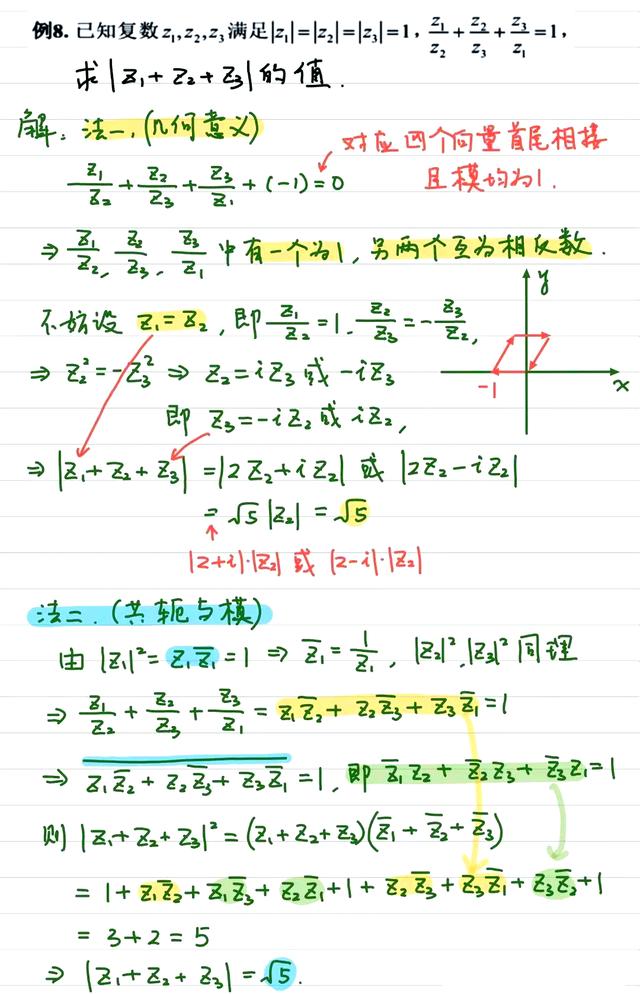 例8. 已知复数 z₁, z₂, z₃ 满足 |z₁| = |z₂| = |z₃| = 1, z₁/z₂ + z₂/z₃ + z₃/z₁ = 1,
求 |z₁ + z₂ + z₃| 的值.
解: 法一. (几何意义)
对应四个向量首尾相接
且模均为1.
z₁/z₂ + z₂/z₃ + z₃/z₁ + (-1) = 0
⇒ z₁/z₂, z₂/z₃, z₃/z₁ 中有一个为1, 另两个互为相反数.
不妨设 z₁ = z₂, 即 z₁/z₂ = 1. z₂/z₃ = -z₃/z₂,
y
⇒ z₂² = -z₃² ⇒ z₂ = iz₃ 或 -iz₃
-1 x
即 z₃ = -iz₂ 或 iz₂,
⇒ |z₁ + z₂ + z₃| = |2z₂ + iz₂| 或 |2z₂ - iz₂|
= √5 |z₂| = √5
|2+i|·|z₂| 或 |2-i|·|z₂|
法二. (共轭与模)
由 |z₁|² = z₁z̅₁ = 1 ⇒ z̅₁ = 1/z₁, |z₂|², |z₃|² 同理
⇒ z₁/z₂ + z₂/z₃ + z₃/z₁ = z₁z̅₂ + z₂z̅₃ + z₃z̅₁ = 1
⇒ \overline{z₁z̅₂ + z₂z̅₃ + z₃z̅₁} = 1, 即 z̅₁z₂ + z̅₂z₃ + z̅₃z₁ = 1
则 |z₁ + z₂ + z₃|² = (z₁ + z₂ + z₃)(z̅₁ + z̅₂ + z̅₃)
= 1 + z₁z̅₂ + z₁z̅₃ + z₂z̅₁ + 1 + z₂z̅₃ + z₃z̅₁ + z₃z̅₂ + 1
= 3 + 2 = 5
⇒ |z₁ + z₂ + z₃| = √5.